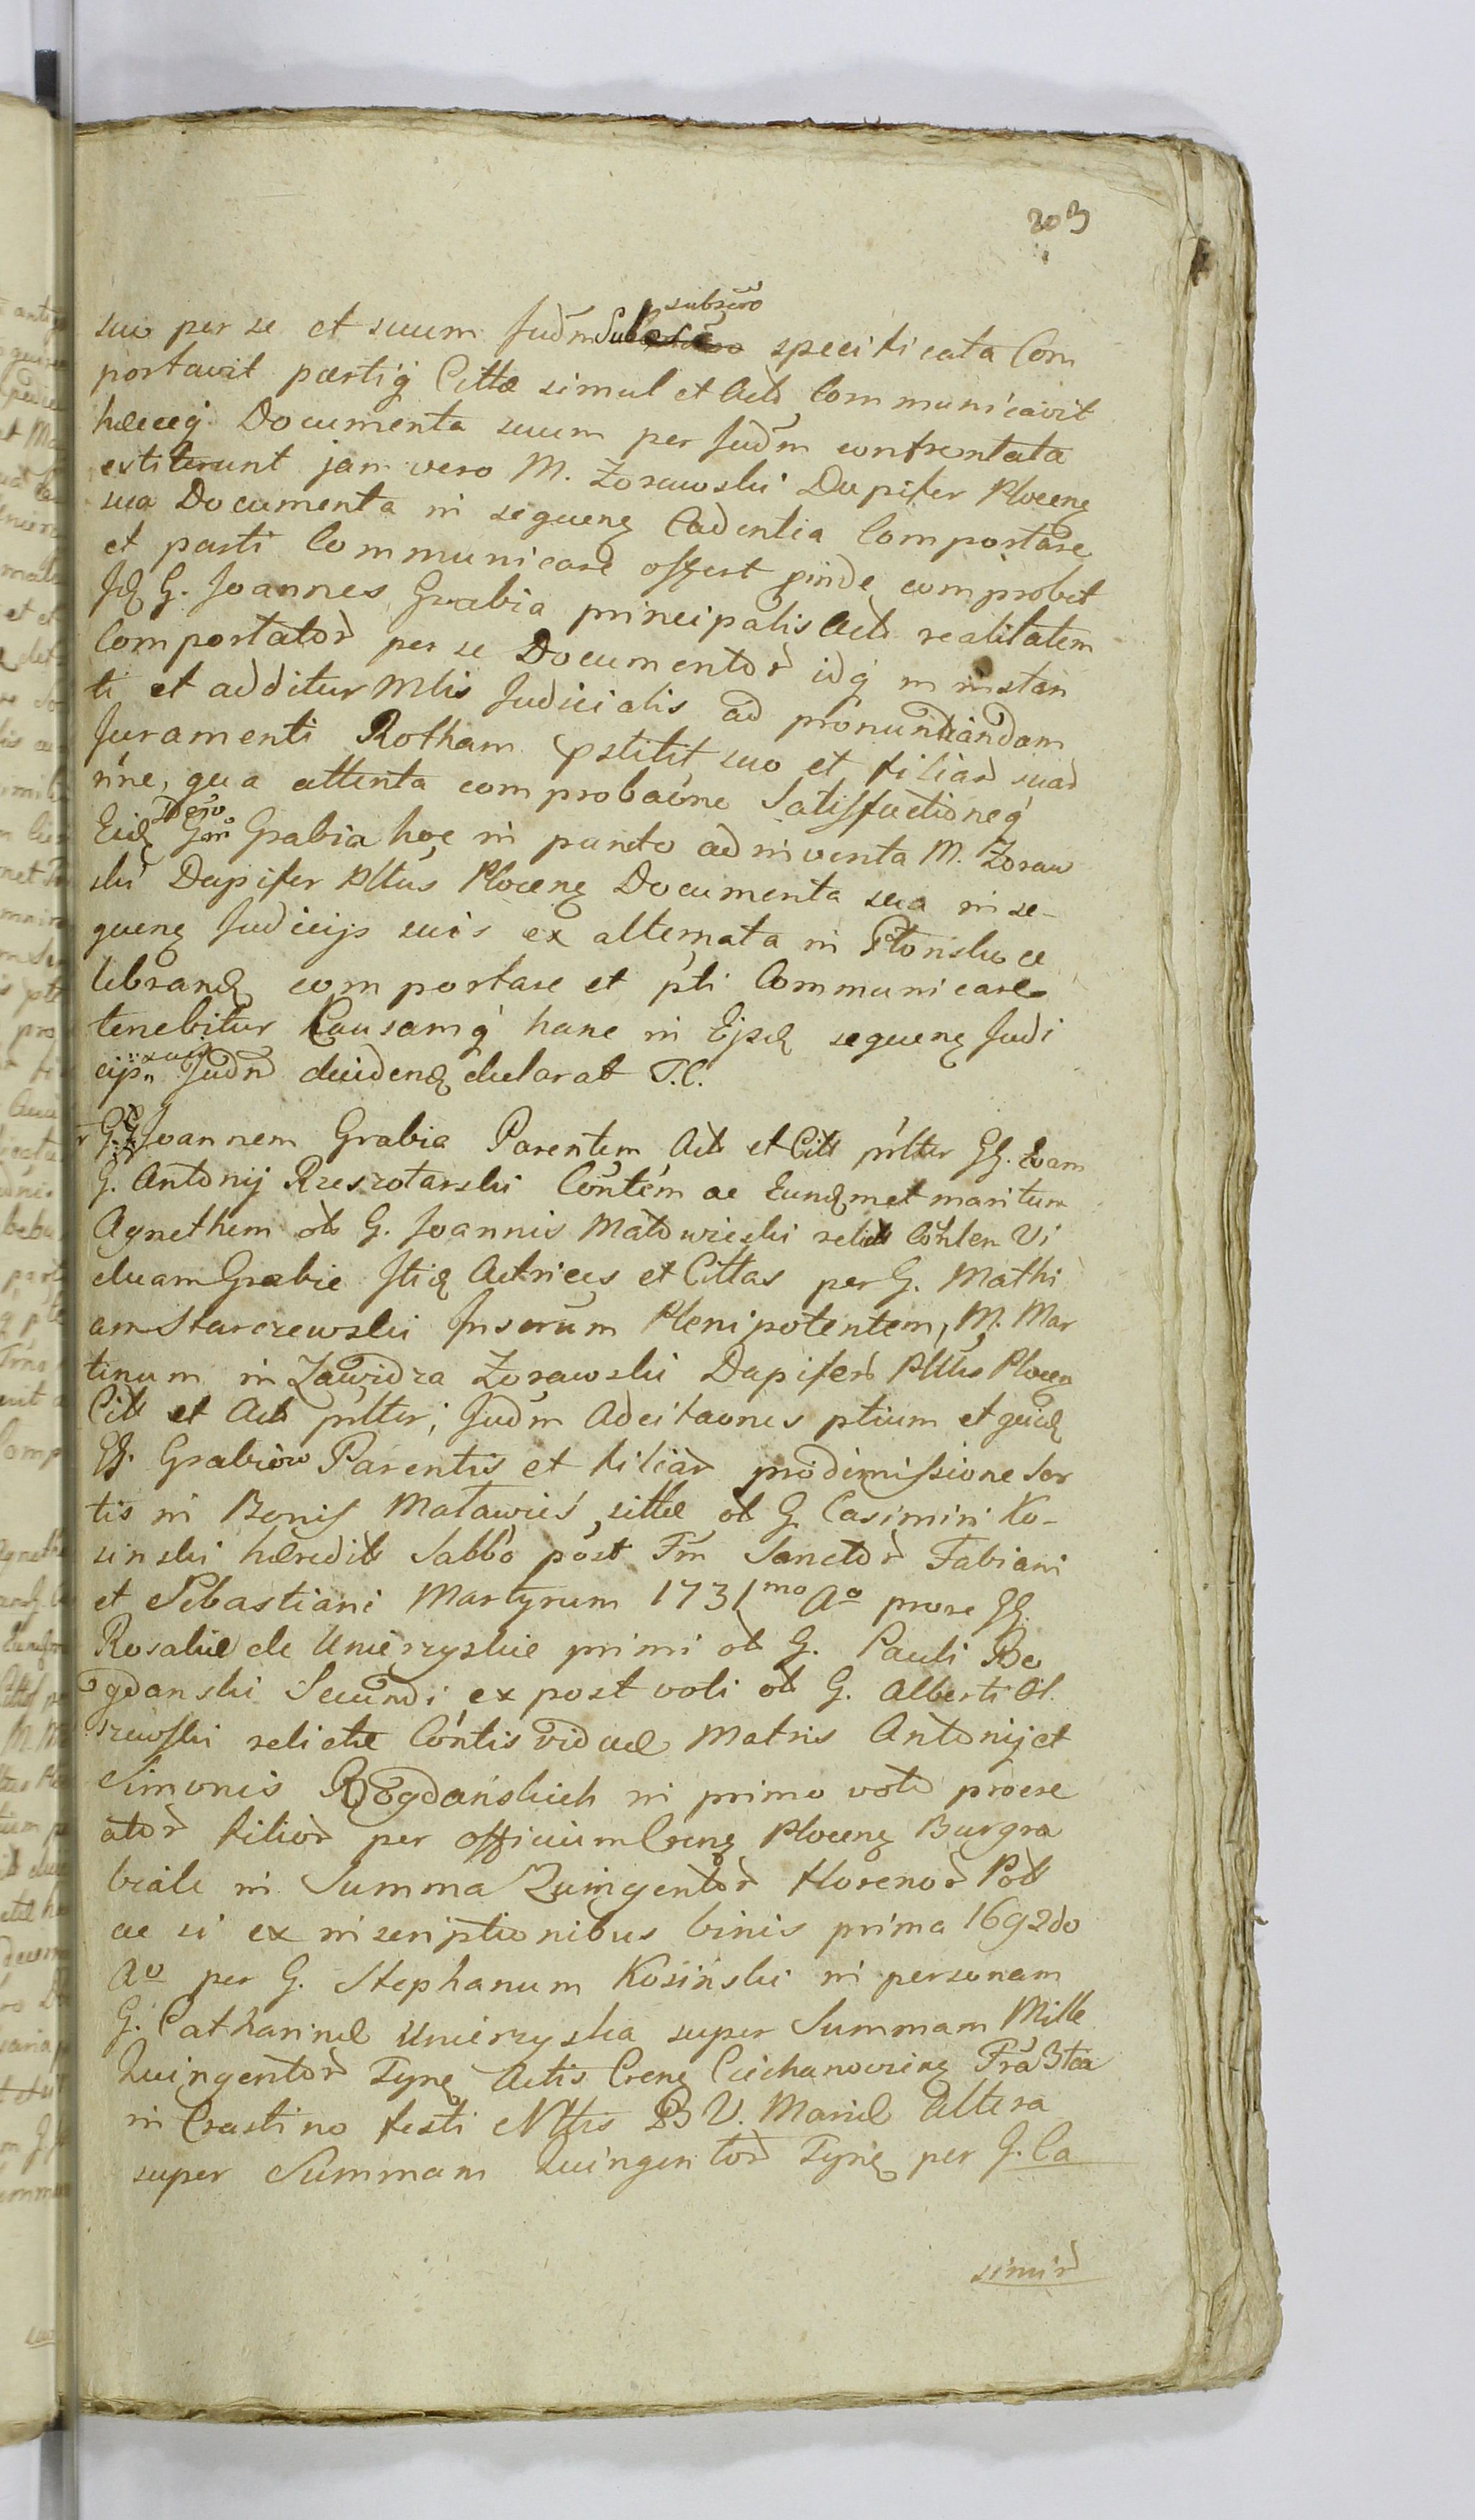 203
subscro
suo per se et suum Judm specificata Com
portavit partiq Cittæ simul et Actr Communicavit
hæcceq Documenta suum per Judm confrontata
extiterunt jam vero M. Zorawski Dapifer Ploceng
sua Documenta in sequeng Cadentia Comportare
et parti Communicare offert proinde comprobet
Jd G. Joannes Grabia principalis Actr realitatem
Comportator per se Documentor idq in instan
ti et additur Mlis Judicialis ad pronuntiandam
Juramenti Rotham pstitit suo et filiar suar
nne, qua attenta comprobaone Satisfactioneq
Eid Gnro Grabia hoc in puncto adinventa M. Zoraw
ski Dapifer Plttus Ploceng Documenta sua in se-
queng Judicijs suis ex alternata in Płonsko ce
lebrand comportare et pti Communicare
tenebitur Causamq hanc in Ejsd sequeng Judi
cijs suis Judm decidend declarat T.C.
Inter GG Joannem Grabia Parentem Actr et Citt pnlter GG. Evam
G. Antonij Rzeszotarski Contem ac Eundmet maritum
Agnethem olt G. Joannis Małowieski relict Conlem Vi
duam Grabie Itid Actrices et Cittas per G. Mathi
am Starczewski Inserum Plenipotentem, M. Mar
tinum in Zawidza Zorawski Dapifer Plttus Ploceng
Citt et Actr pnlter; Judm Adcitaones ptium et quid
GG. Grabiow Parentis et filiar pro dimissione Sor
tis in Bonis Matawieś, sittæ olt G. Casimiri Ko-
sinski hæredit Sabbo post Fm Sanctor Fabiani
et Sebastiani Martyrum 1731mo Ao prore GG.
Rosaliæ de Unierzyskie primi olt G. Pauli Bo
gdanski Secundi ex post voti olt G. Alberti Ol
szewski relictæ Contis viduæ Matris Antonij et
Simonis Bogdańskich in primo voto procre
ator filior per officium Creng Ploceng Burgra
biale in Summa Quingentor florenor Polt
ac si ex inscriptionibus binis prima 1692do
Ao per G. Stephanum Kosinski in personam
G. Catharinæ Unierzyska super Summam Mille
Quingentor Tyng Actis Creng Ciechanovieng Fra 3tia
in Crastino festi Nttis B V. Mariæ altera
super Summam Quingentor Tyng per G. Ca
simir